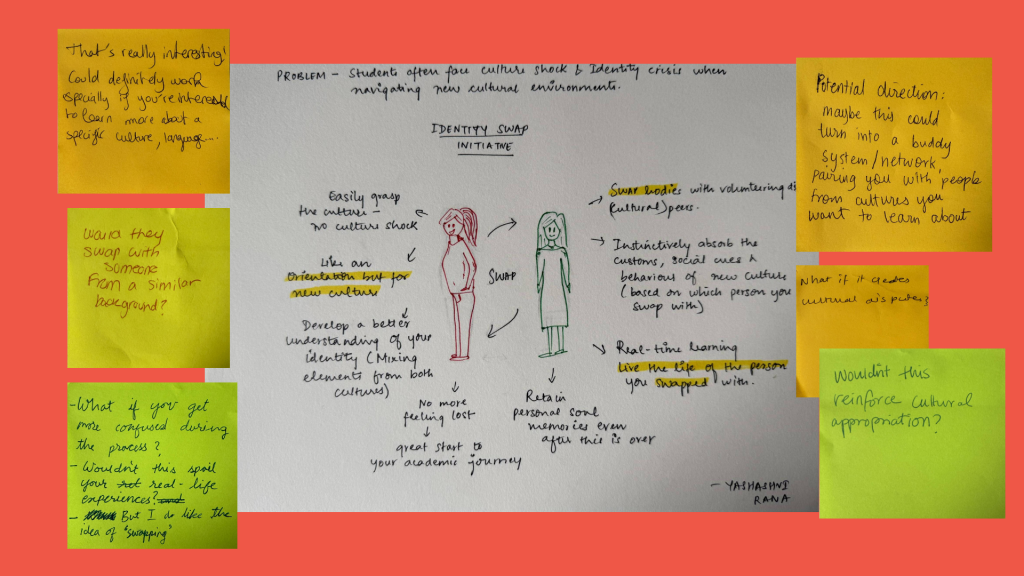 That's really interesting!
Could definitely work
especially if you're interested
to learn more about a
specific culture, language....
would they
swap with
someone
from a similar
background?
- What if you get
more confused during
the process?
- Wouldn't this spoil
your real-life
experiences?
- But I do like the
idea of "swapping"
PROBLEM - Students often face culture shock & Identity crisis when
navigating new cultural environments.
IDENTITY SWAP
INITIATIVE
Easily grasp
the culture -
no culture shock
Like an
orientation but for
new culture
Develop a better
understanding of your
identity (Mixing
elements from both
cultures)
No more
feeling lost
great start to
your academic journey
SWAP
Swap bodies with volunteering
(cultural) peers.
Instinctively absorb the
customs, social cues &
behaviour of new culture
(based on which person you
swap with)
Real-time learning
Live the life of the person
you swapped with.
Retain
personal soul
memories even
after this is over
- YASHASHNI
RANA
Potential direction:
maybe this could
turn into a buddy
system/network,
pairing you with people
from cultures you
want to learn about
What if it creates
cultural disputes?
Wouldn't this
reinforce cultural
appropriation?